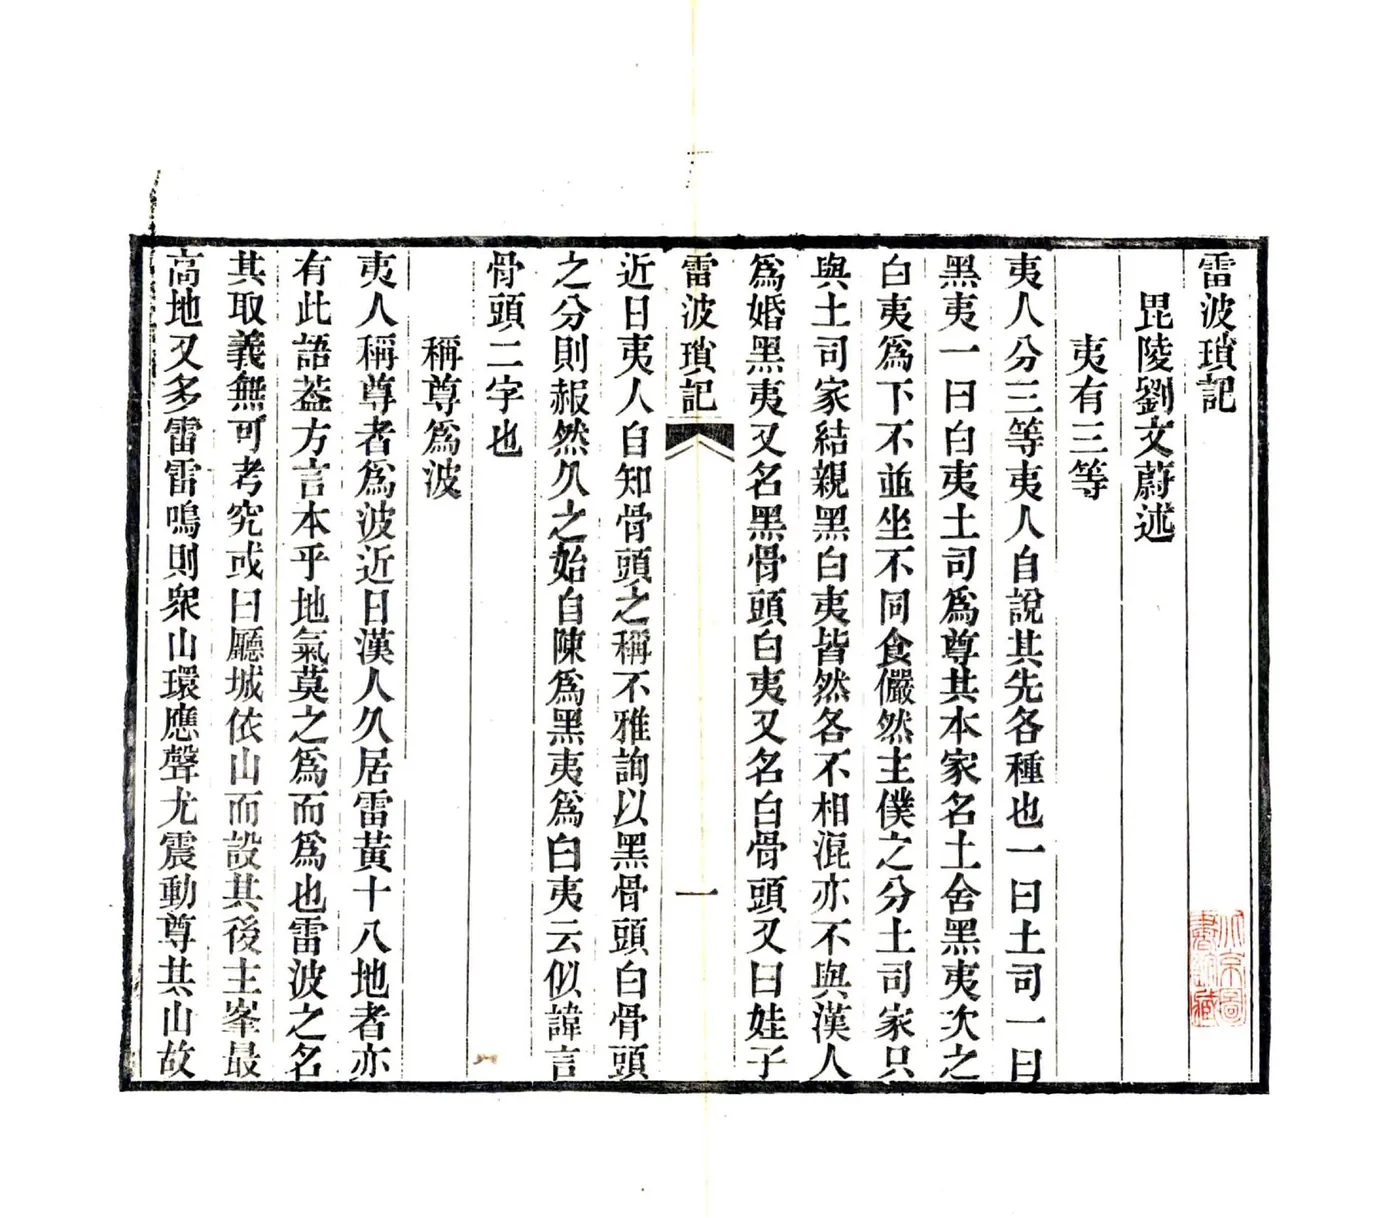 雷波瑣記
毘陵劉文蔚述
夷有三等
夷人分三等夷人自說其先各種也一曰土司一曰
黑夷一曰白夷土司爲尊其本家名土舍黑夷次之
白夷爲下不並坐不同食儼然主僕之分土司家只
與土司家結親黑白夷皆然各不相混亦不與漢人
爲婚黑夷又名黑骨頭白夷又名白骨頭又曰娃子
雷波瑣記
一
近日夷人自知骨頭之稱不雅詢以黑骨頭白骨頭
之分則赧然久之始自陳爲黑夷爲白夷云似諱言
骨頭二字也
稱尊爲波
夷人稱尊者爲波近日漢人久居雷黃十八地者亦
有此語葢方言本乎地氣莫之爲而爲也雷波之名
其取義無可考究或曰廳城依山而設其後主峯最
高地又多雷雷鳴則衆山環應聲尤震動尊其山故
北京圖
書館藏